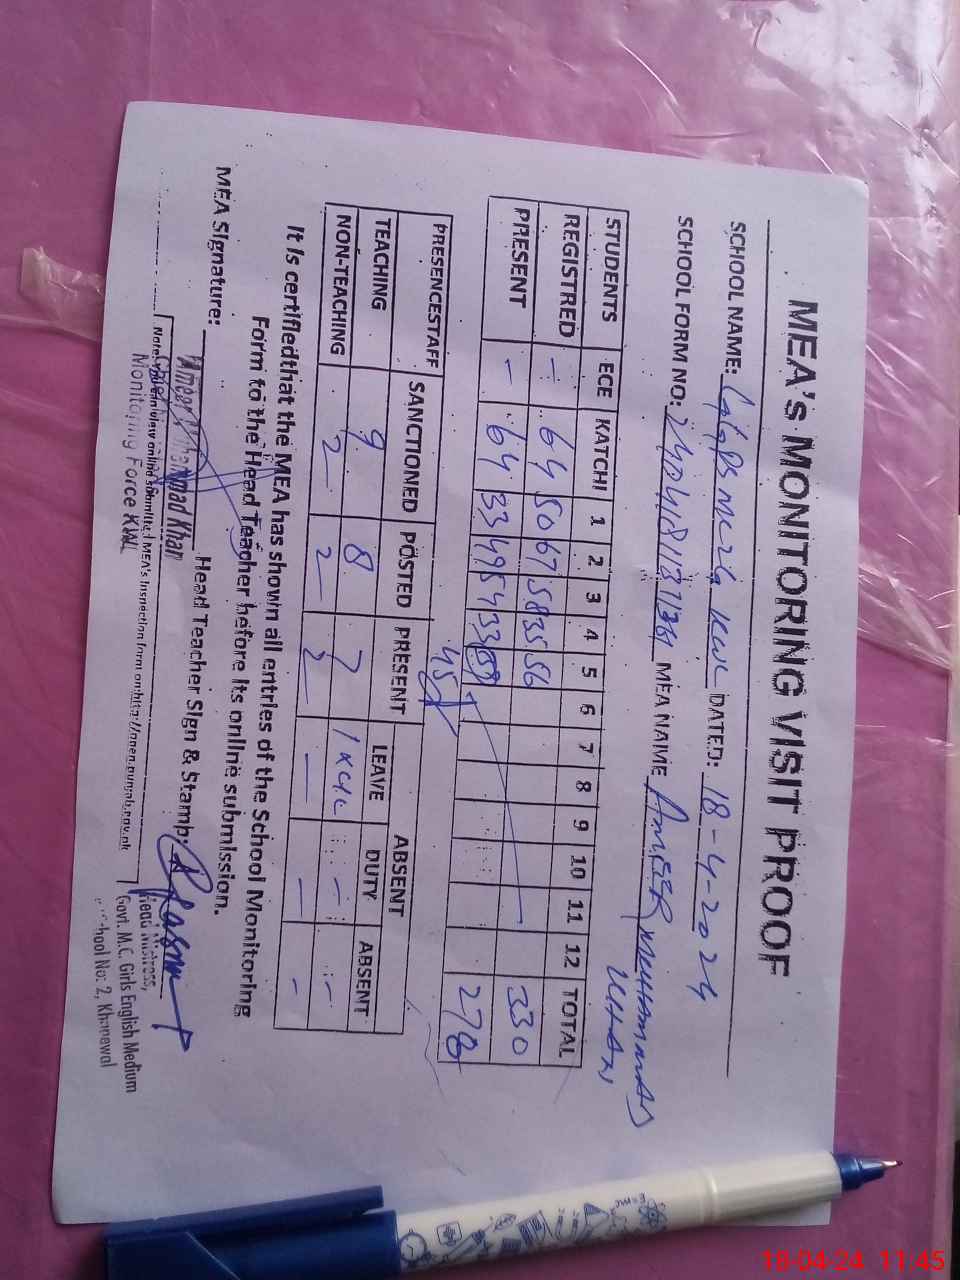 MEA's MONITORING VISIT PROOF
SCHOOL NAME: DATED: 18-4-2024
SCHOOL FORM NO: MEA NAME AMEER MUHAMMAD
KHAN
STUDENTS ECE KATCHI 1 2 3 4 5 6 7 8 9 10 11 12 TOTAL
REGISTRED - 64 50 67 58 35 56 330
PRESENT - 64 33 49 54 33 278
45
PRESENCESTAFF SANCTIONED POSTED PRESENT ABSENT
LEAVE DUTY ABSENT
TEACHING 9 8 7 - -
NON-TEACHING 2 2 2 - - -
It is certifiedthat the MEA has shown all entries of the School Monitoring
Form to the Head Teacher before its online submission.
MEA Signature: Head Teacher Sign & Stamp:
Ameer Muhammad Khan
Monitoring Force KWL
Head Mistress,
Govt. M.C. Girls English Medium
School No: 2, Khanewal
18-04-24 11:45